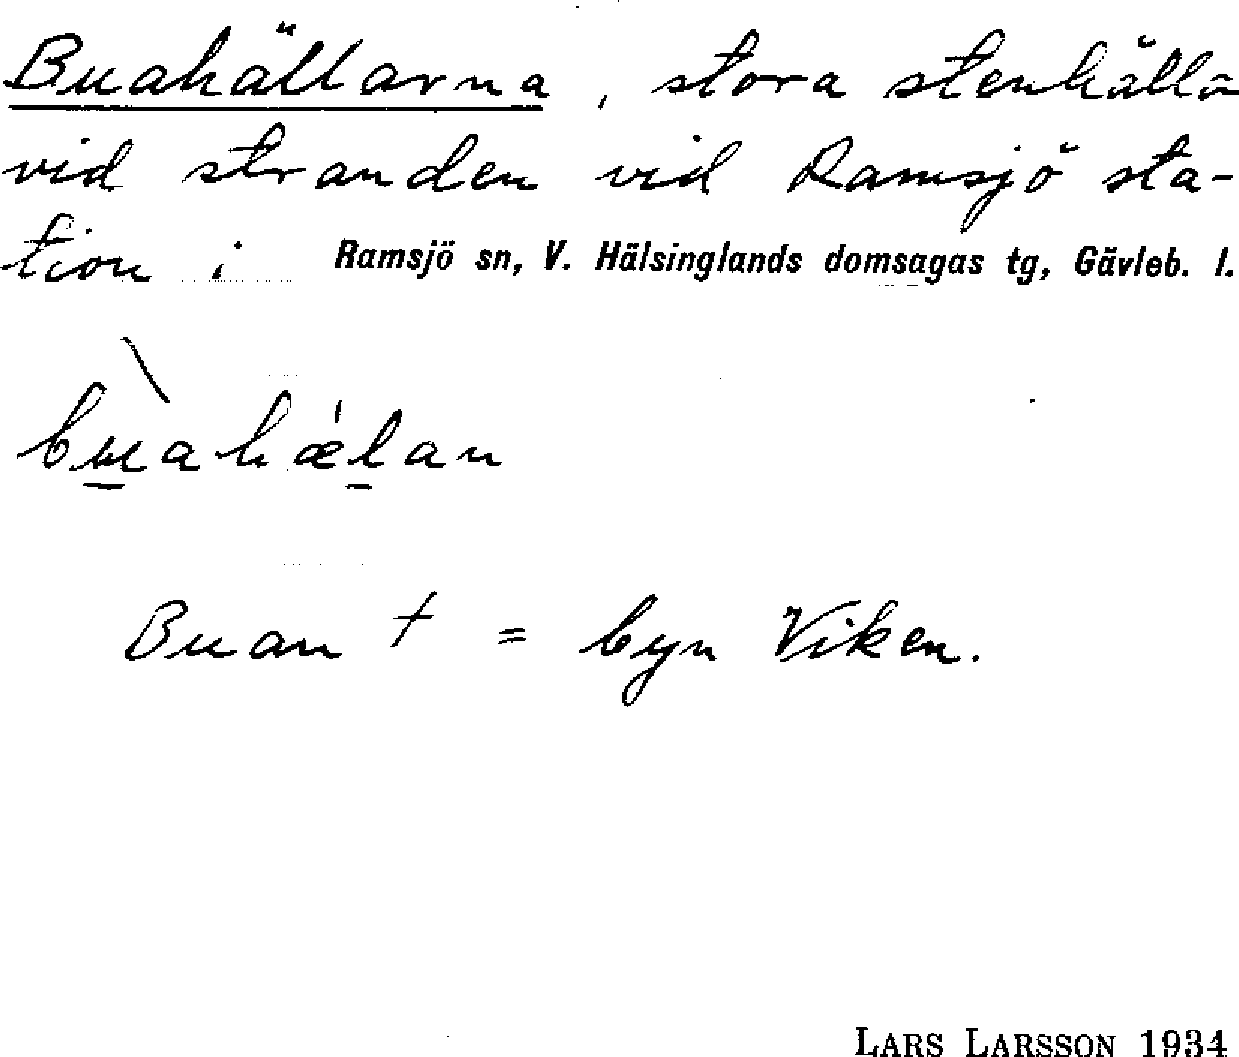 Buahällarna, stora stenhälla
vid stranden vid Ramsjö sta-
tion i Ramsjö sn, V. Hälsinglands domsagas tg, Gävleb. l.
buahælan
Buan † = byn Viken.
LARS LARSSON 1934